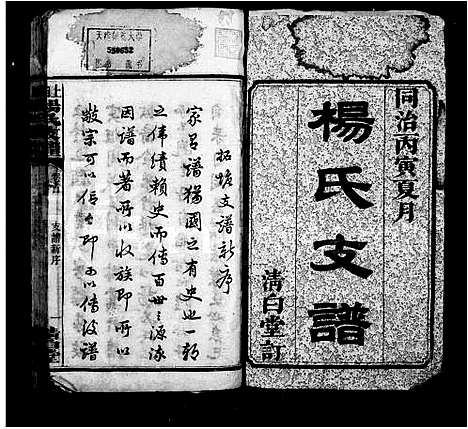 同治丙寅夏月
楊氏支譜
清白堂訂
拓塘支譜新序
家呂譜猶國之有史也一部
之偉績賴史而傳百世之源流
因譜而著所以收族即所以
敬宗可以信士即可以傳後譜
支譜新序
580652